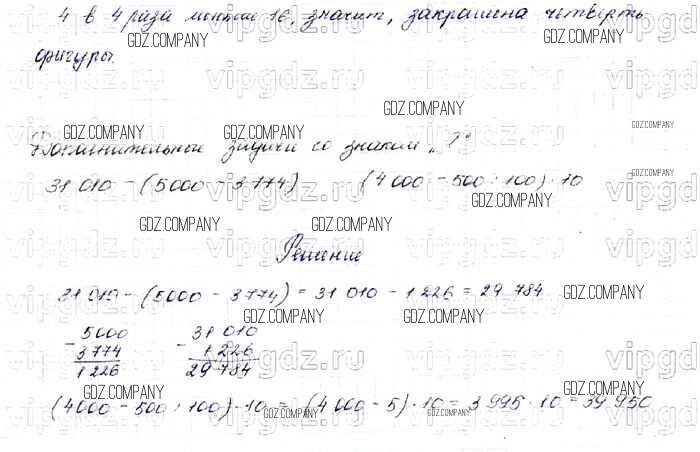 4 в 4 раза меньше 16, значит, закрашена четверть
фигуры.
Дополнительные задачи со знаком „?"
31 010 - (5000 - 3774)   (4 000 - 500 : 100) · 10
Решение
31 010 - (5000 - 3 774) = 31 010 - 1 226 = 29 784
- 5000   - 31 010
3 774   1 226
1 226   29 784
(4000 - 500 : 100) · 10 = (4 000 - 5) · 10 = 3 995 · 10 = 39 950